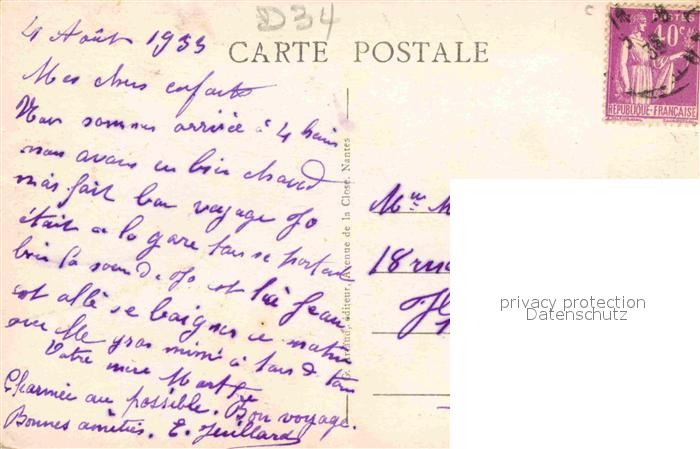 D34
4 Août 1933
CARTE POSTALE
POSTES
40 c
REPUBLIQUE-FRANÇAISE
Mes chers enfants
Nous sommes arrivée à 4 heures
nous avons eu bien chaud
mais fait bon voyage Jo
était a la gare tous se portent
bien la soeur de Jo est là Jean
est allé se baigner ce matin
avec Mlle gros mimi à tous de tous
Votre mère
Charmée au possible. Bon voyage.
Bonnes amitiés. E. Juillard
éditeur, Avenue de la Close, Nantes
18 rue
privacy protection
Datenschutz